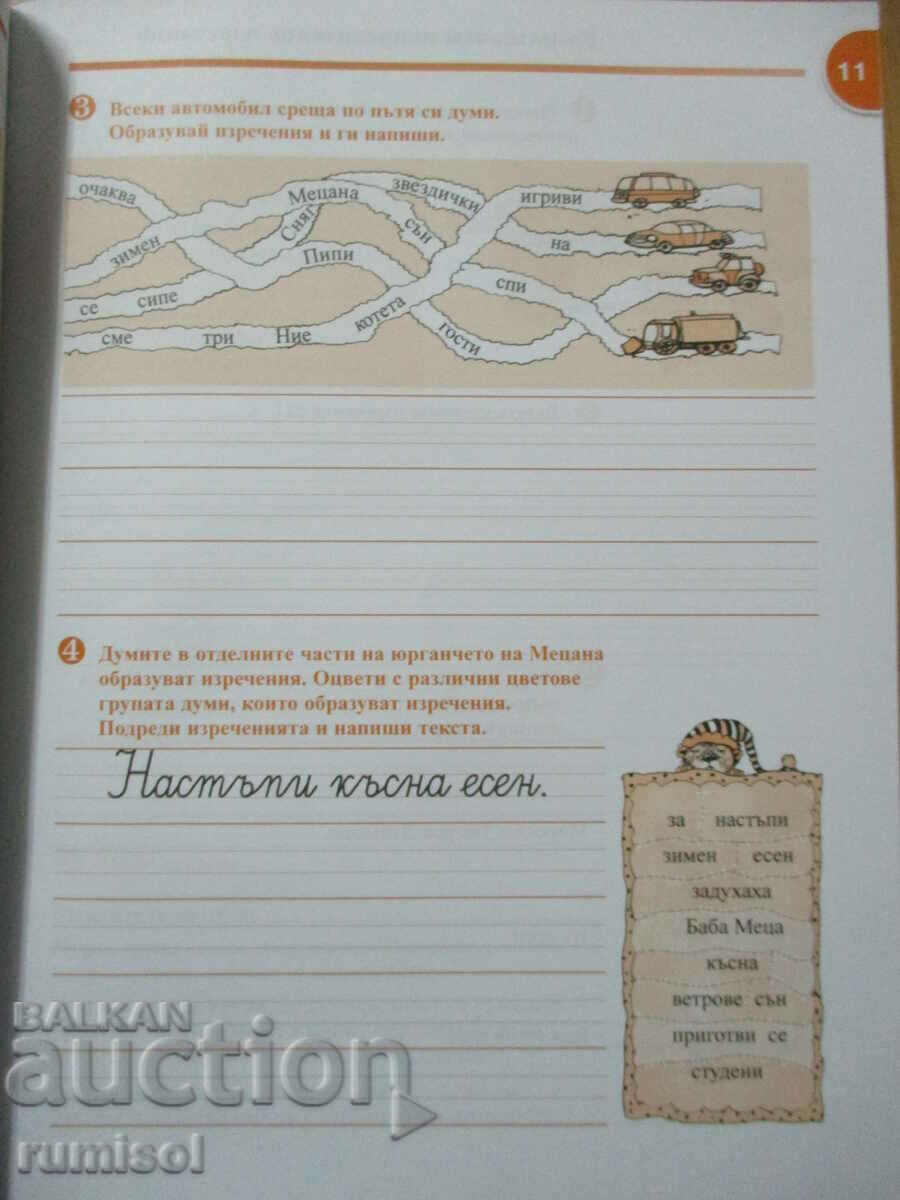 11
3 Всеки автомобил среща по пътя си думи.
Образувай изречения и ги напиши.
очаква
зимен
Мецана
Сняг
звездички
сън
игриви
на
Пипи
спи
се сипе
котета
гости
сме три Ние
4 Думите в отделните части на юрганчето на Мецана
образуват изречения. Оцвети с различни цветове
групата думи, които образуват изречения.
Подреди изреченията и напиши текста.
Настъпи късна есен.
за настъпи
зимен есен
задухаха
Баба Меца
късна
ветрове сън
приготви се
студени
BALKAN
auction
rumisol